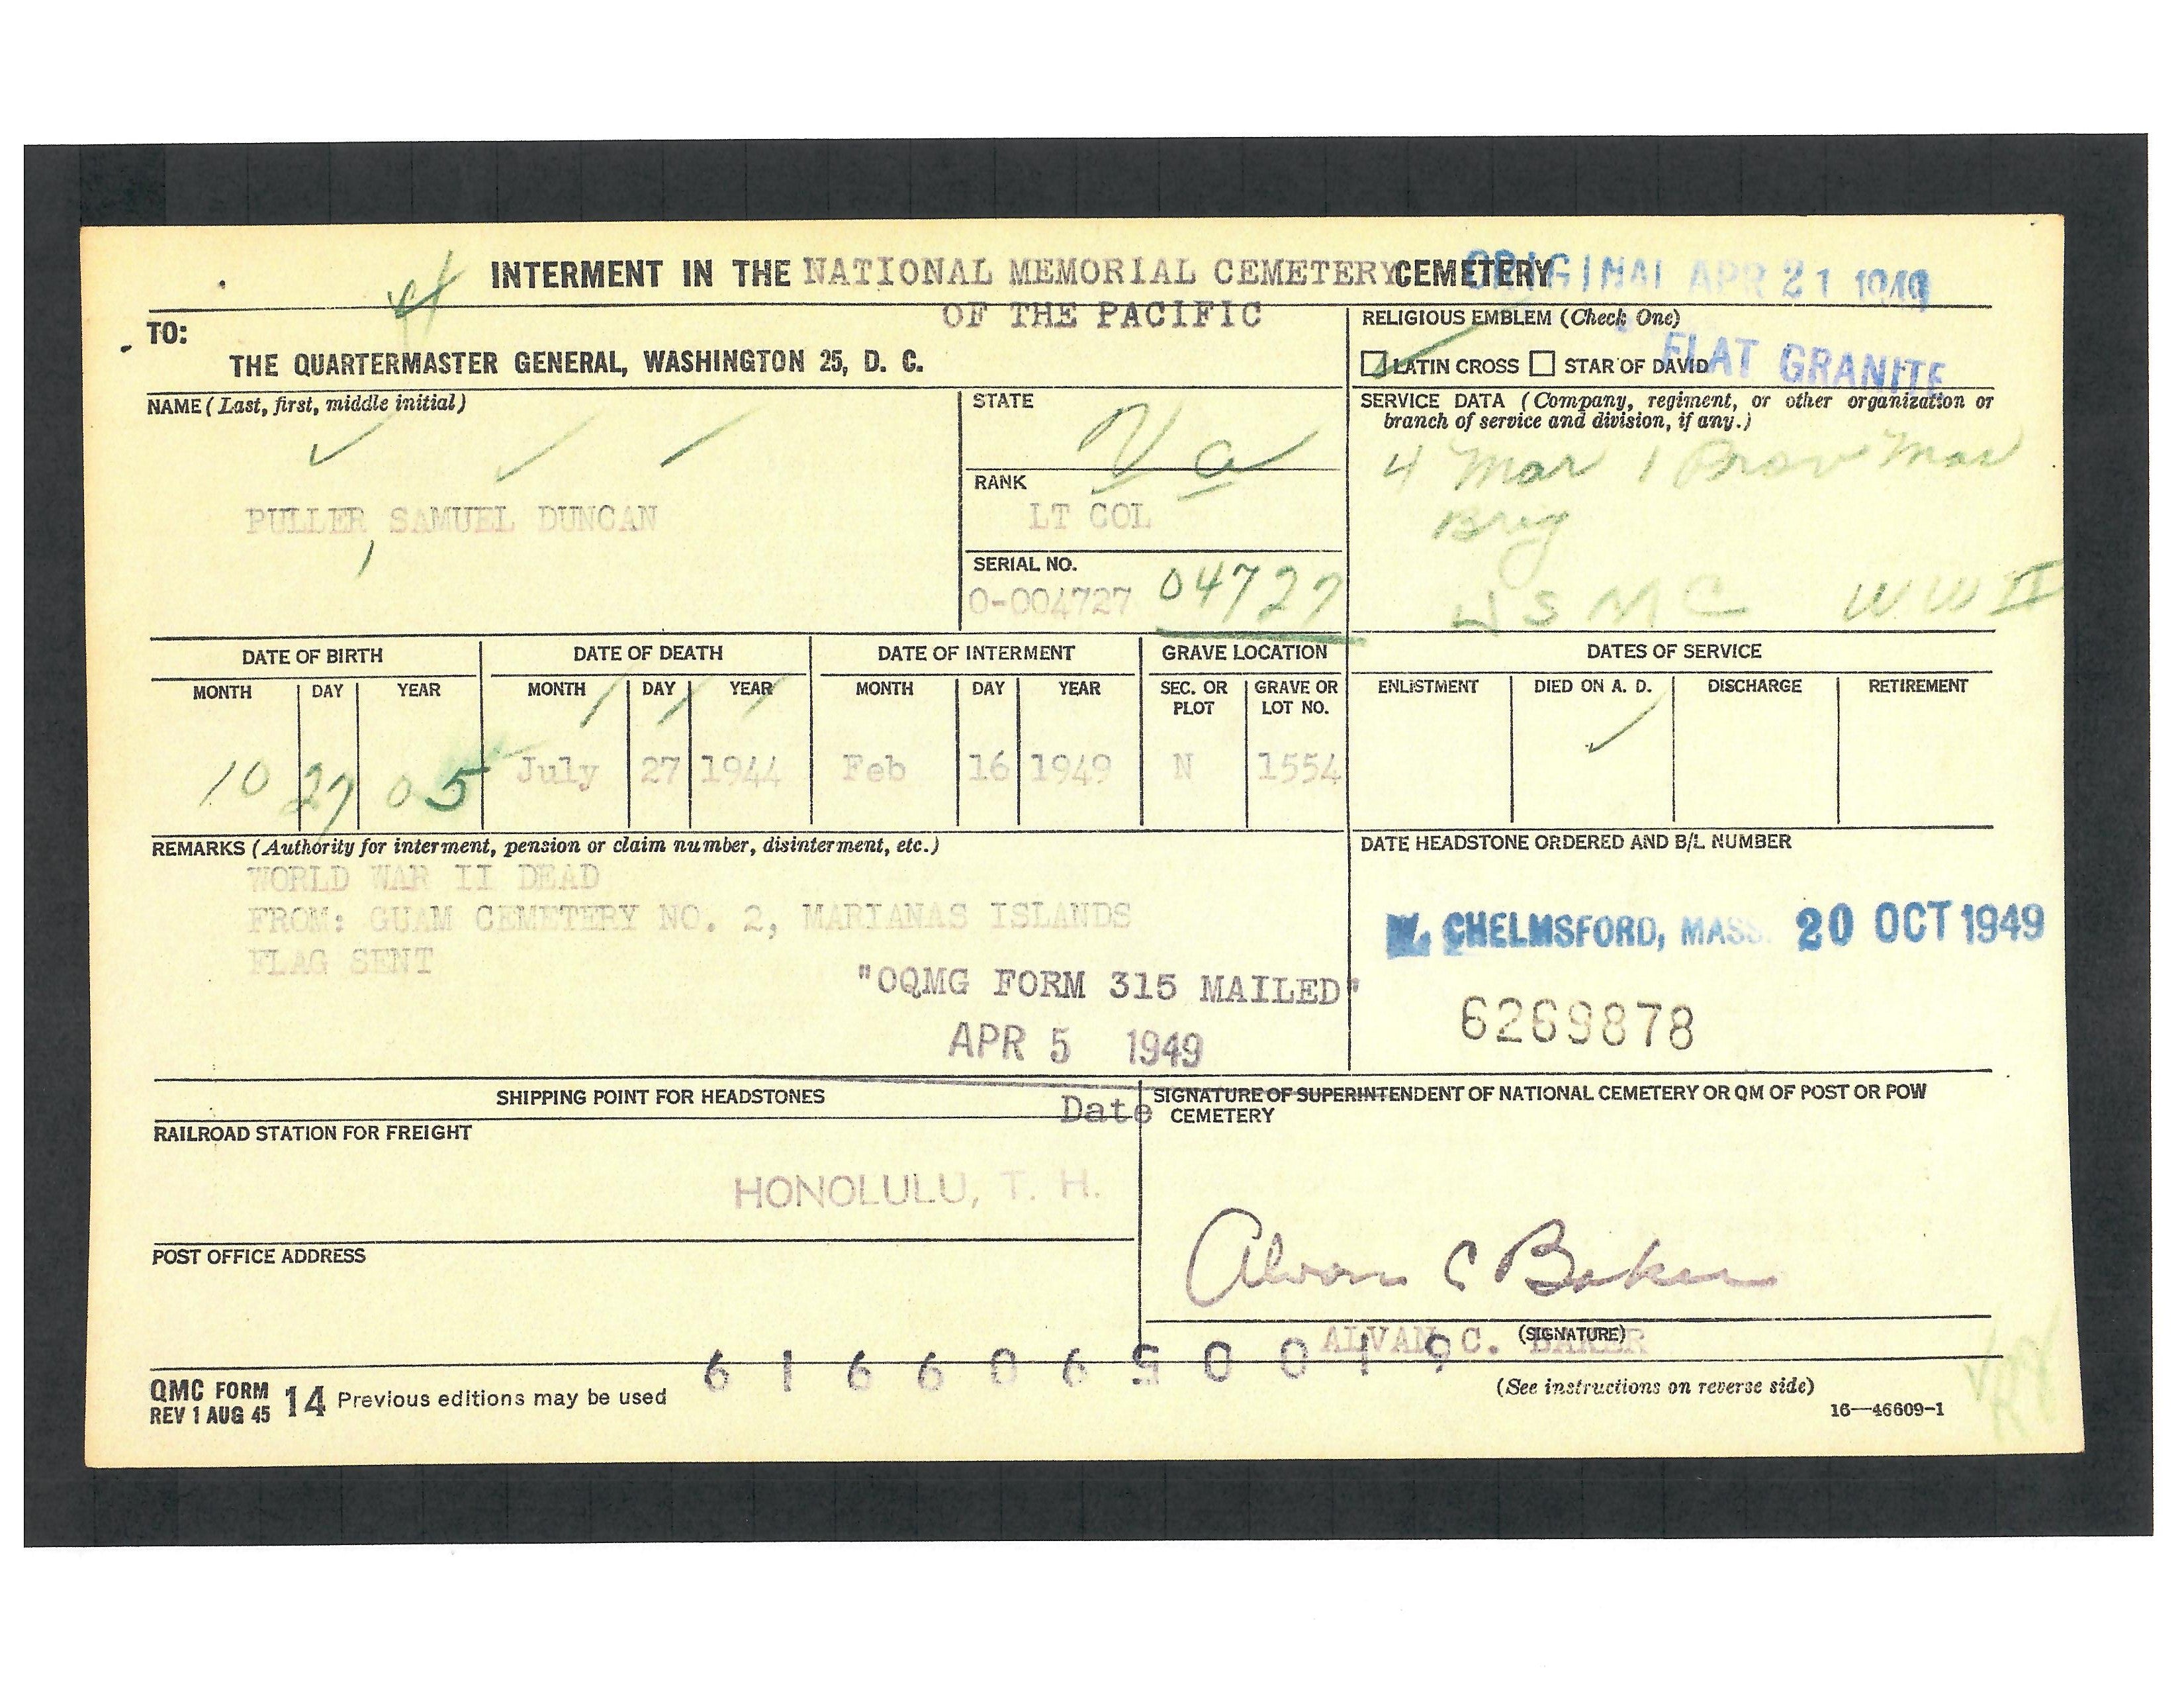 INTERMENT IN THE NATIONAL MEMORIAL CEMETERY CEMETERY ORIGINAL APR 21 1949
OF THE PACIFIC
TO:
THE QUARTERMASTER GENERAL, WASHINGTON 25, D. C.
RELIGIOUS EMBLEM (Check One)
LATIN CROSS STAR OF DAVID
FLAT GRANITE
NAME (Last, first, middle initial)
PULLER, SAMUEL DUNCAN
STATE
Va
RANK
LT COL
SERIAL NO.
O-004727 04727
SERVICE DATA (Company, regiment, or other organization or
branch of service and division, if any.)
4 Mar 1 Prov Mar
Brig
USMC WW II
DATE OF BIRTH DATE OF DEATH DATE OF INTERMENT GRAVE LOCATION DATES OF SERVICE
MONTH DAY YEAR MONTH DAY YEAR MONTH DAY YEAR SEC. OR PLOT GRAVE OR LOT NO. ENLISTMENT DIED ON A. D. DISCHARGE RETIREMENT
10 27 05 July 27 1944 Feb 16 1949 N 1554
REMARKS (Authority for interment, pension or claim number, disinterment, etc.)
WORLD WAR II DEAD
FROM: GUAM CEMETERY NO. 2, MARIANAS ISLANDS
FLAG SENT
"OQMG FORM 315 MAILED"
APR 5 1949
Date
DATE HEADSTONE ORDERED AND B/L NUMBER
W. CHELMSFORD, MASS. 20 OCT 1949
6269878
SHIPPING POINT FOR HEADSTONES
RAILROAD STATION FOR FREIGHT
HONOLULU, T. H.
POST OFFICE ADDRESS
SIGNATURE OF SUPERINTENDENT OF NATIONAL CEMETERY OR QM OF POST OR POW
CEMETERY
Alvan C Baker
(SIGNATURE)
ALVAN C. BAKER
6 1 6 6 0 6 5 0 0 1 9
QMC FORM 14 Previous editions may be used
REV 1 AUG 45
(See instructions on reverse side)
16—46609-1